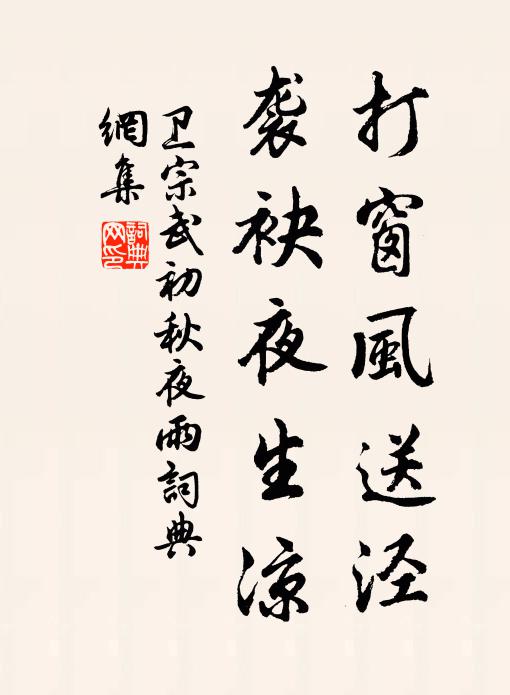 打窗風送泾
袭袂夜生涼
卫宗武初秋夜雨詞典
網集
詞典網印